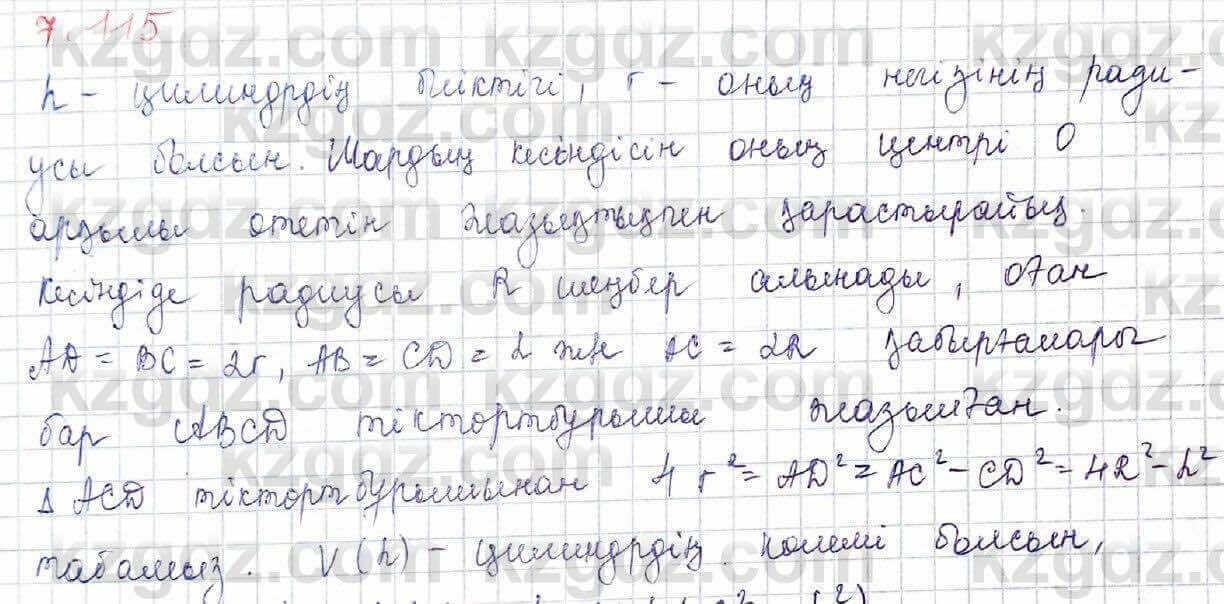 7.115
h – цилиндрдің биіктігі, r – оның негізінің ради-
усы болсын. Шардың кесіндісін оның центрі О
арқылы өтетін жазықтықпен қарастырайық.
Кесіндіде радиусы R шеңбер алынады, оған
AD = BC = 2r, AB = CD = h және AC = 2R қабырғалары
бар ABCD тіктөртбұрышы жазылған.
Δ ACD тіктөртбұрышынан 4r² = AD² = AC² – CD² = 4R² – h²
табамыз. V(h) – цилиндрдің көлемі болсын,